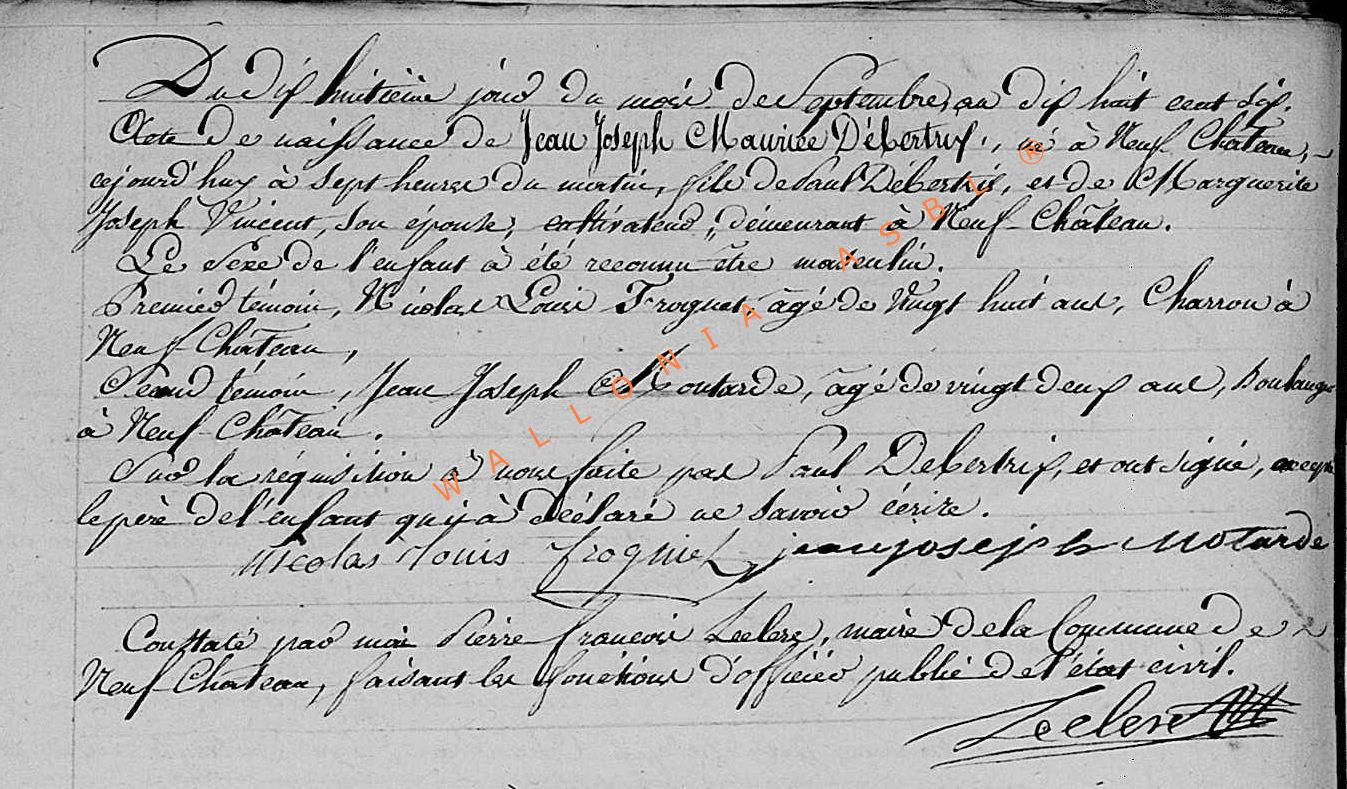 Du dix huitième jour du mois de Septembre, an dix huit cent six.
Acte de naissance de Jean Joseph Maurice Débertrix, né à Neuf Château,
cejourd'huy à sept heures du matin, fils de Paul Débertrix, et de Marguerite
Joseph Vincent, son épouse, cultivateurs, demeurant à Neuf-Château.
Le Sexe de l'enfant à été reconnu être masculin.
Premier témoin, Nicolas Louis Frognet, âgé de Vingt huit ans, Charron à
Neuf Château,
Second témoin, Jean Joseph Moutarde, âgé de vingt deux ans, Boulanger
à Neuf-Château.
Sur la réquisition à nous faite par Paul Debertrix, et ont signé, excepté
le père de l'enfant qui à déclaré ne savoir écrire.
Nicolas Louis frogniet jean joseph Motarde
Constaté par moi Pierre François Leclerc, maire de la Commune de
Neuf-Château, faisant les fonctions d'officier public de l'état civil.
Leclerc
WALLONIA ASBL ®